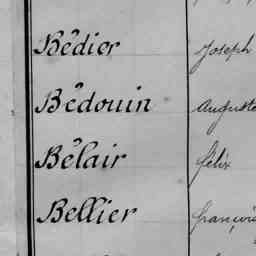 Bédier Joseph
Bédouin Auguste
Bélair félix
Bellier